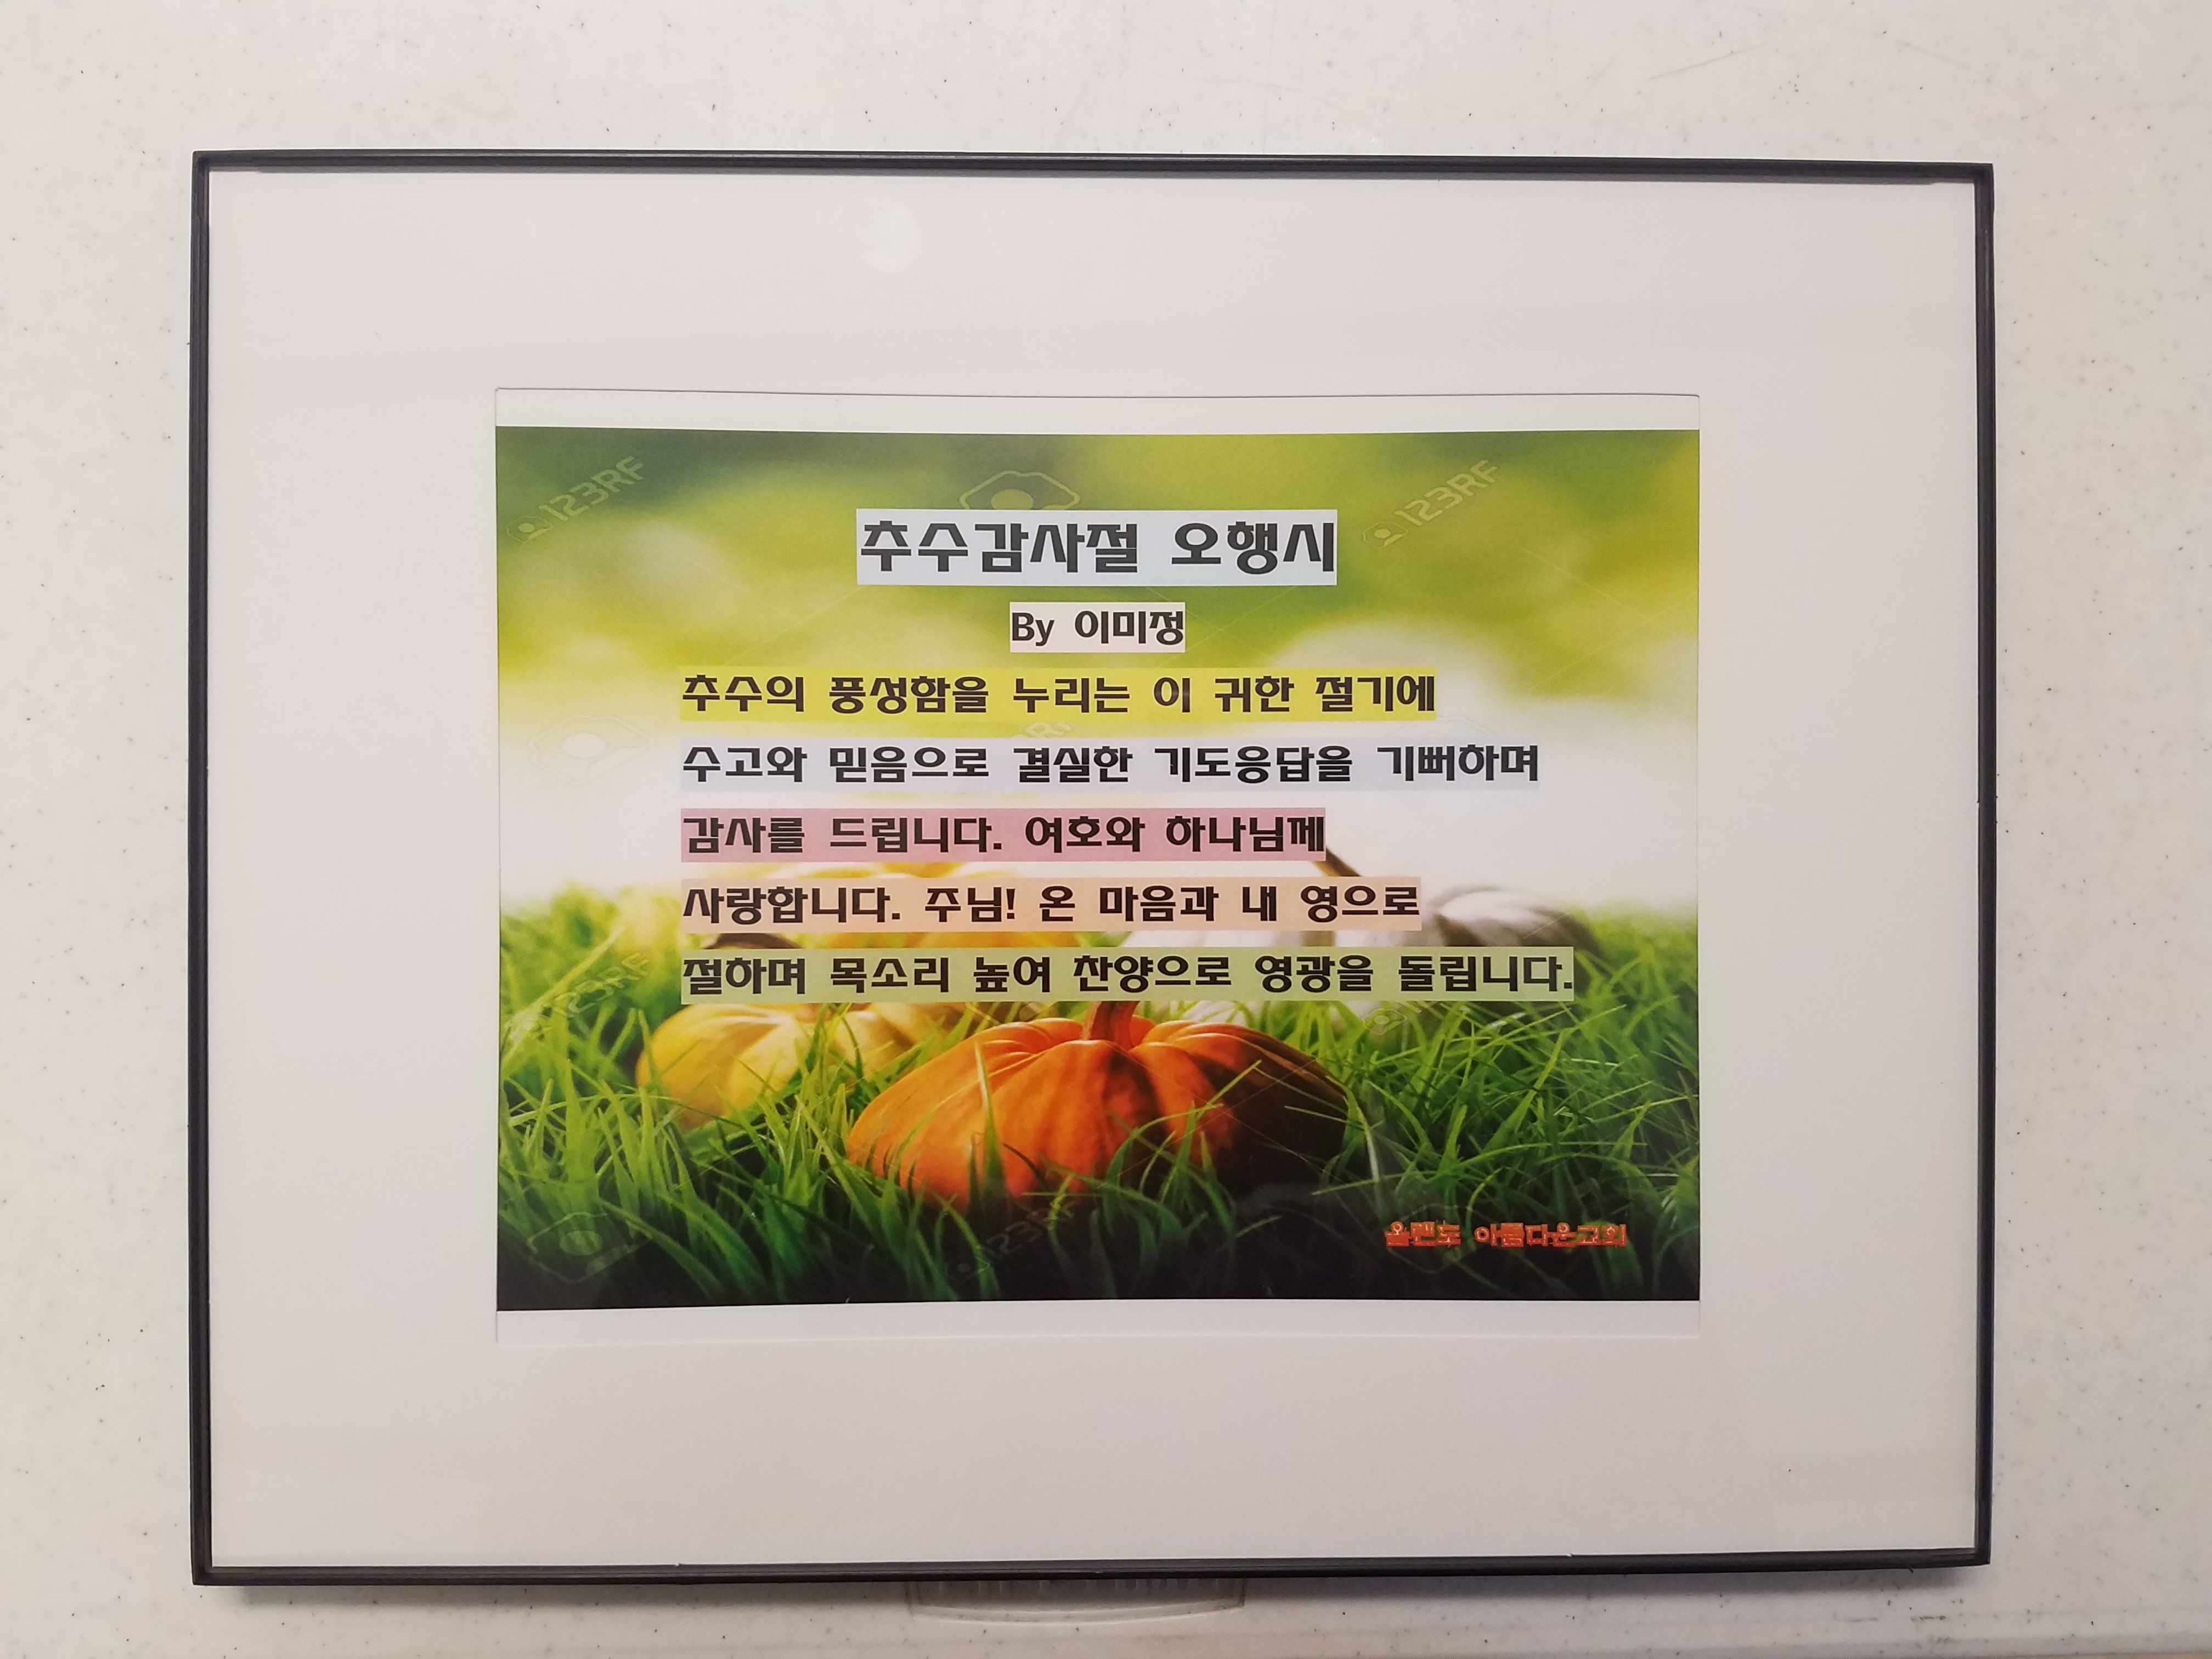 추수감사절 오행시
By 이미정
추수의 풍성함을 누리는 이 귀한 절기에
수고와 믿음으로 결실한 기도응답을 기뻐하며
감사를 드립니다. 여호와 하나님께
사랑합니다. 주님! 온 마음과 내 영으로
절하며 목소리 높여 찬양으로 영광을 돌립니다.
올랜도 아름다운교회
123RF
123RF
123RF
123RF